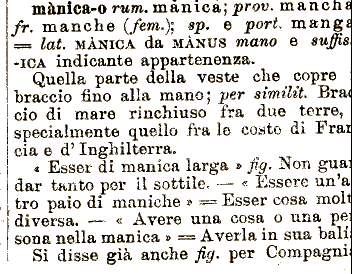 mànica-o rum. mânica; prov. mancha
fr. manche (fem.); sp. e port. manga
= lat. MÀNICA da MÀNUS mano e suffis.
-ICA indicante appartenenza.
Quella parte della veste che copre
braccio fino alla mano; per similit. Brac
cio di mare rinchiuso fra due terre,
specialmente quello fra le coste di Fran
cia e d' Inghilterra.
« Esser di manica larga » fig. Non guar
dar tanto per il sottile. — « Essere un'a
tro paio di maniche » = Esser cosa molt
diversa. — « Avere una cosa o una per
sona nella manica » = Averla in sua balì
Si disse già anche fig. per Compagni